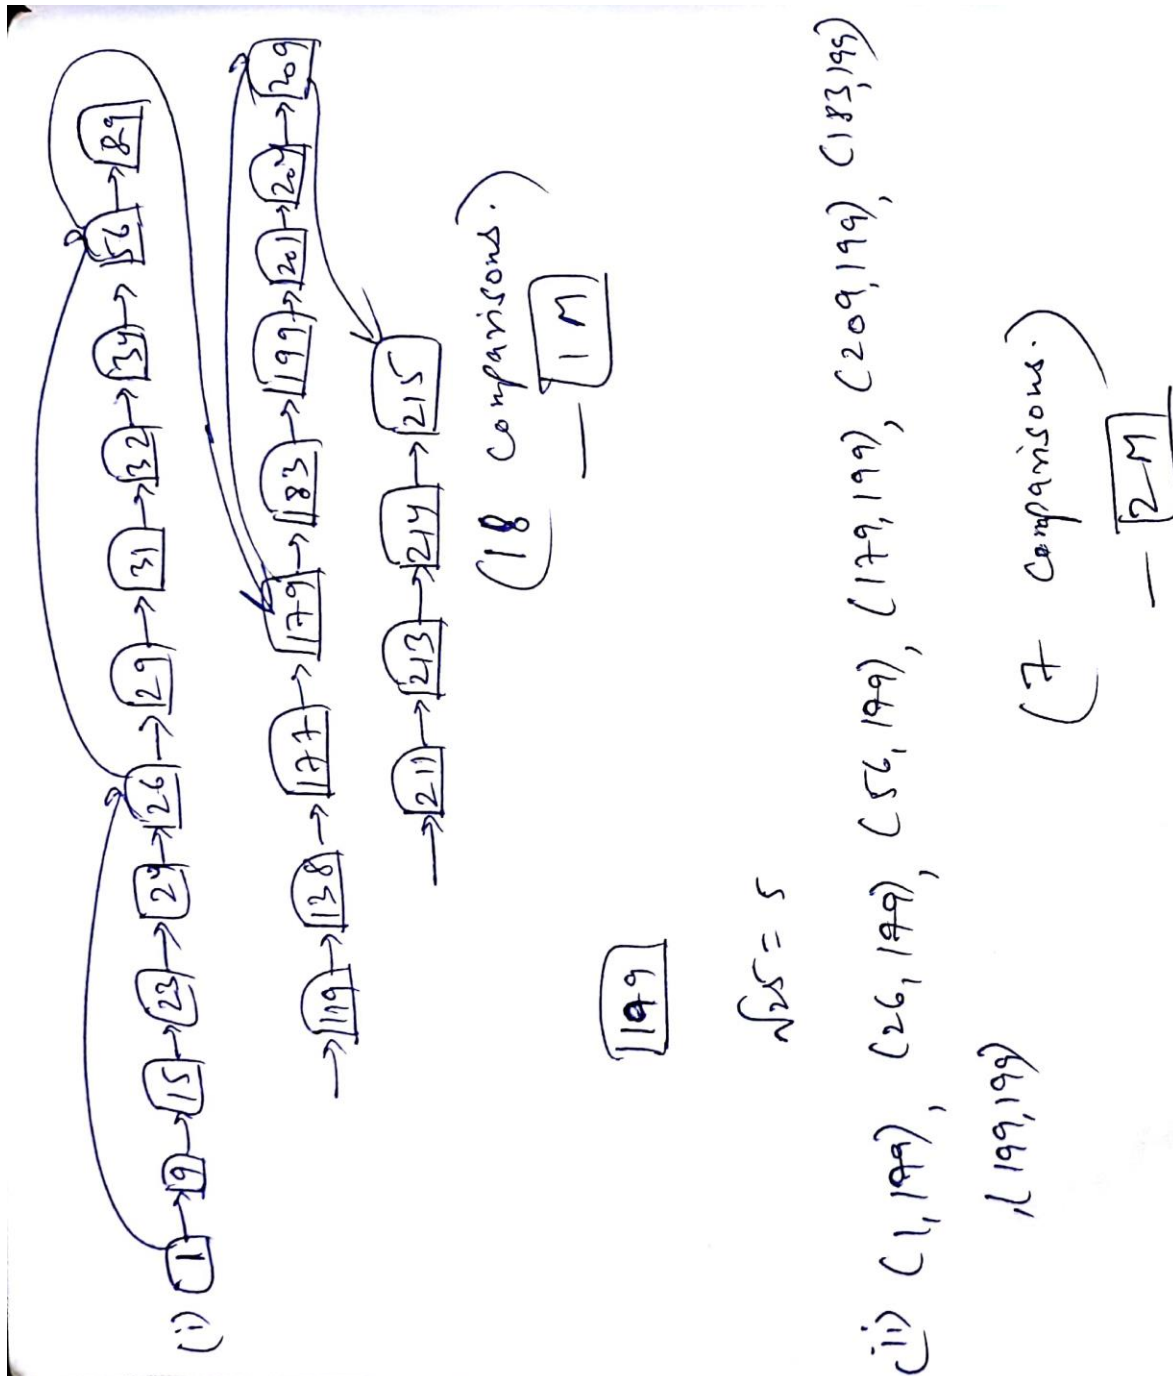 (i) 1 → 9 → 15 → 23 → 24 → 26 → 29 → 31 → 32 → 34 → 56 → 89
→ 119 → 138 → 177 → 179 → 183 → 199 → 201 → 204 → 209
→ 211 → 213 → 214 → 215
(18 comparisons.)
— 1 M
199
√25 = 5
(ii) (1, 199), (26, 199), (56, 199), (179, 199), (209, 199), (183, 199)
, (199, 199)
(7 comparisons.)
— 2 M